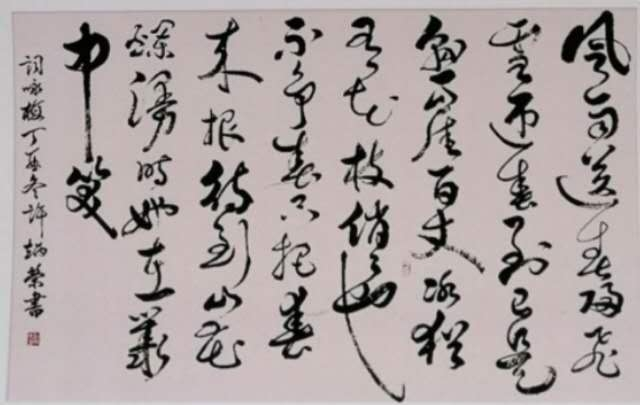 風雨送春歸飛
雪迎春到已是
懸崖百丈冰猶
有花枝俏々也
不争春只把春
来报待到山花
爛漫时她在叢
中笑
詞咏梅丁亥冬許炳榮書